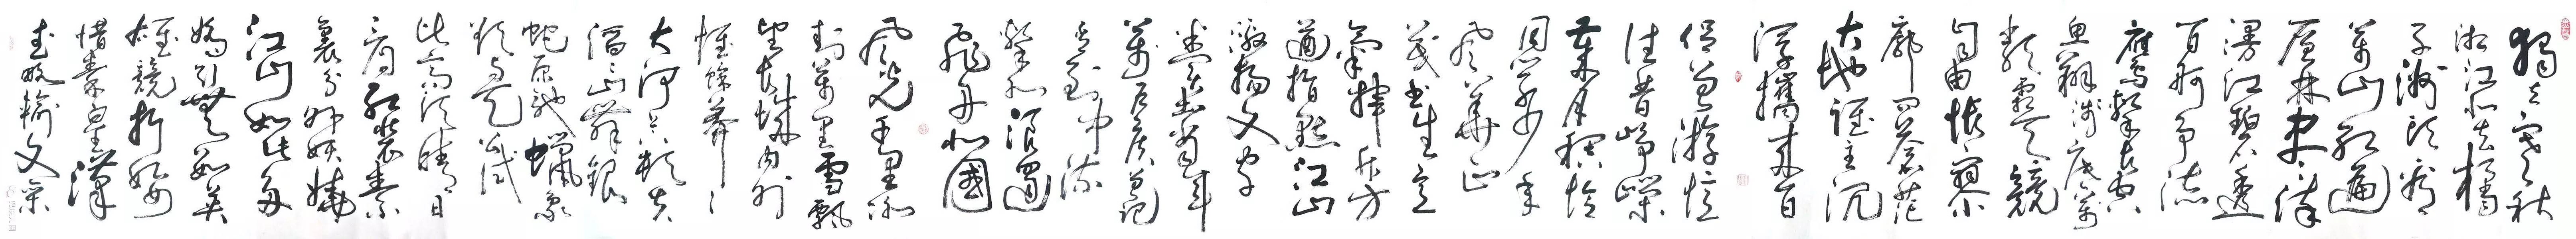 獨立寒秋
湘江北去橘
子洲頭看
萬山紅遍
層林尽染
漫江碧透
百舸爭流
鷹擊長空
魚翔淺底萬
類霜天競
自由悵寥
廓問蒼茫
大地誰主沉
浮攜來百
侶曾游憶
往昔崢嶸
歲月稠恰
同學少年
風華正
茂書生意
氣揮斥方
遒指點江山
激揚文字
糞土當年
萬戶侯曾記
否到中流
擊水浪遏
飛舟北國
風光千里冰
封萬里雪飄
望長城內外
惟餘莽莽
大河上下頓失
滔滔山舞銀
蛇原馳蠟象
欲與天公試
比高須晴日
看紅裝素
裹分外妖嬈
江山如此多
嬌引無數英
雄競折腰
惜秦皇漢
武略輸文采